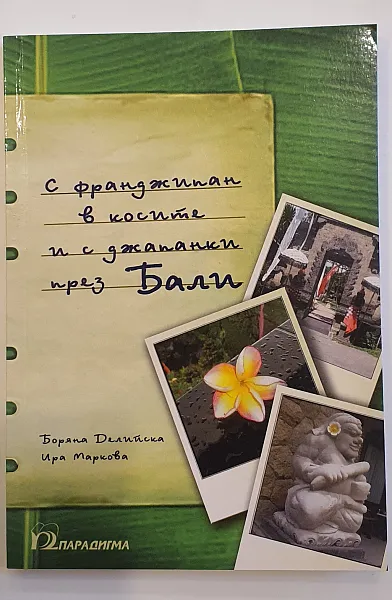 С франджипан
в косите
и с джапанки
през Бали
Боряна Делийска
Ира Маркова
ПАРАДИГМА